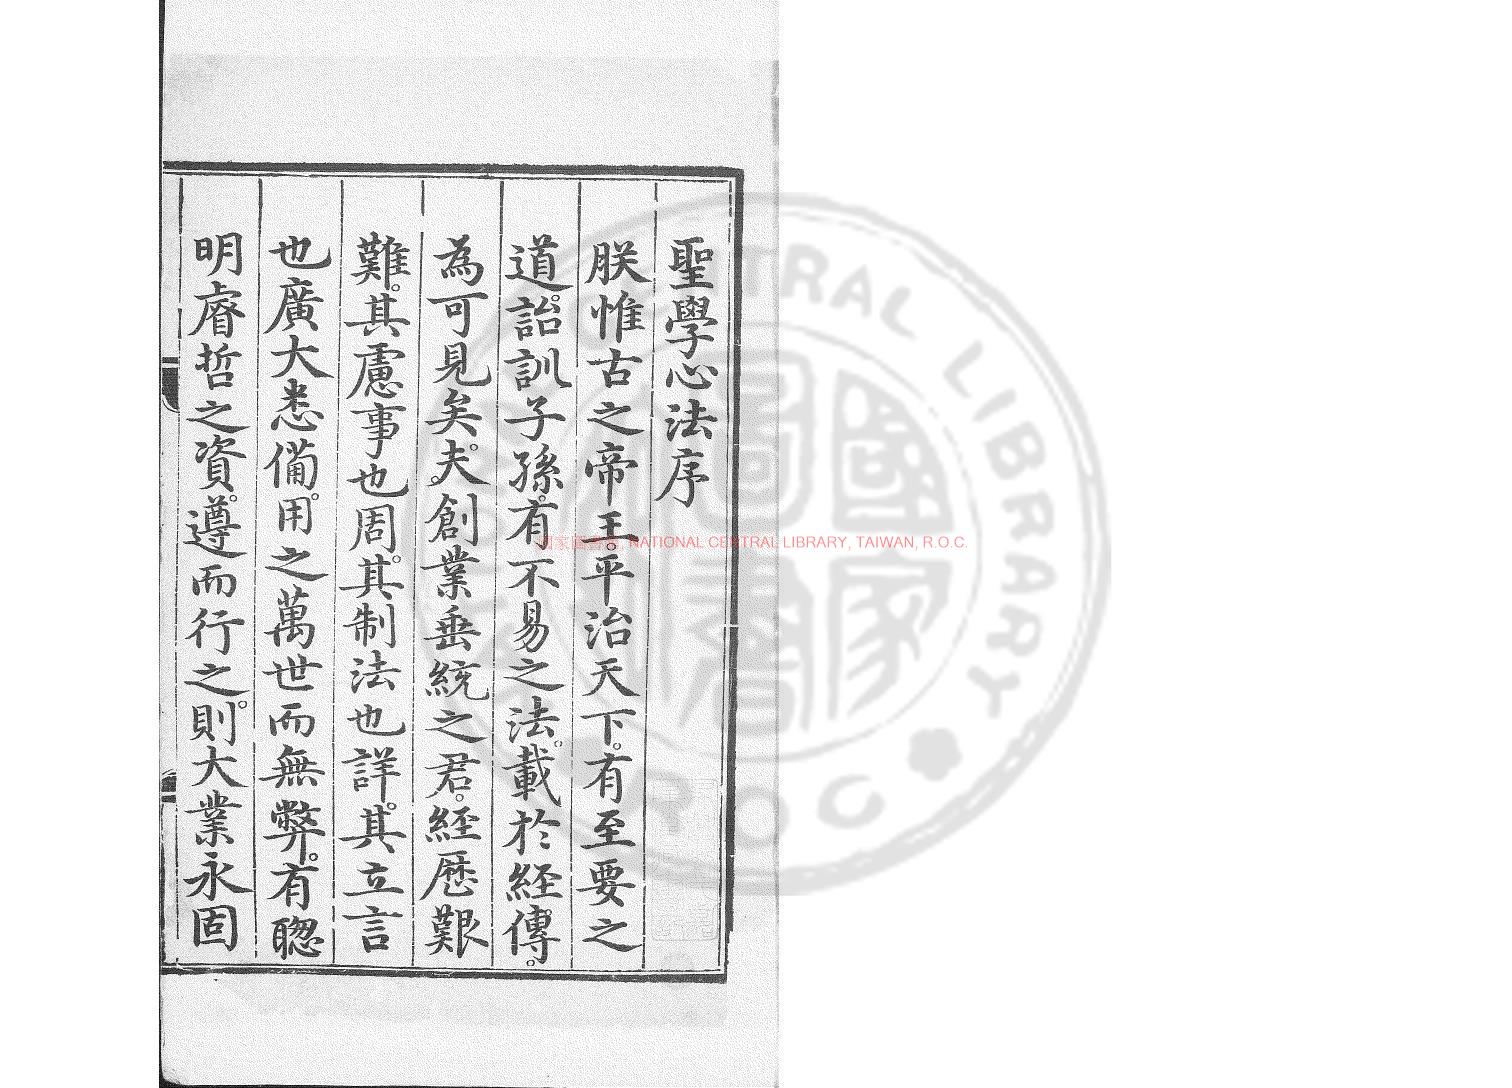 聖學心法序
朕惟古之帝王。平治天下。有至要之
道。詒訓子孫。有不易之法。載於經傳。
為可見矣。夫。創業垂統之君。經歷艱
難。其慮事也周。其制法也詳。其立言
也廣大悉備。用之萬世而無弊。有聰
明睿哲之資。遵而行之。則大業永固
國家圖書館, NATIONAL CENTRAL LIBRARY, TAIWAN, R.O.C.
CENTRAL LIBRARY
R.O.C.
國家圖書